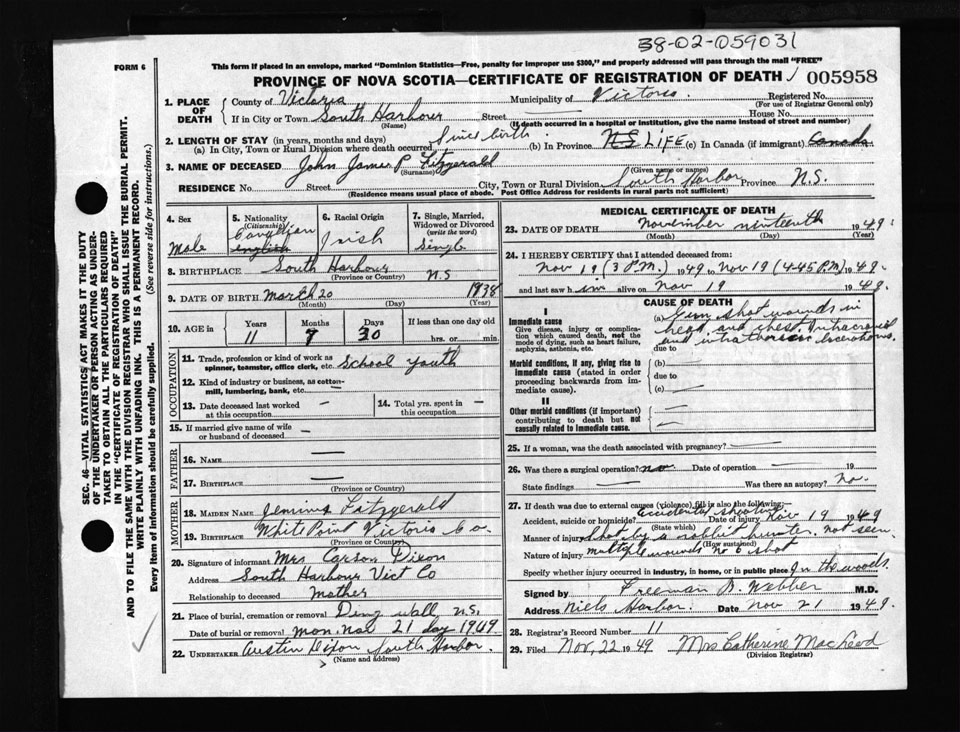 38-02-059031
FORM 6
This form if placed in an envelope, marked "Dominion Statistics—Free, penalty for improper use $300," and properly addressed will pass through the mail "FREE"
PROVINCE OF NOVA SCOTIA—CERTIFICATE OF REGISTRATION OF DEATH
005958
1. PLACE OF DEATH
County of Victoria Municipality of Victoria. Registered No.
(For use of Registrar General only)
If in City or Town South Harbour Street House No.
(Name) (If death occurred in a hospital or institution, give the name instead of street and number)
2. LENGTH OF STAY (in years, months and days)
(a) In City, Town or Rural Division where death occurred Since birth. (b) In Province N.S. LIFE (c) In Canada (if immigrant) Canada
3. NAME OF DECEASED John James P. Fitzgerald
(Surname) (Given name or names)
RESIDENCE No. Street City, Town or Rural Division South Harbor Province N.S.
(Residence means usual place of abode. Post Office Address for residents in rural parts not sufficient)
4. Sex
Male
5. Nationality (Citizenship)
Canadian
English
6. Racial Origin
Irish
7. Single, Married, Widowed or Divorced (write the word)
Single
8. BIRTHPLACE South Harbour N.S
(Province or Country)
9. DATE OF BIRTH March 20 1938
(Month) (Day) (Year)
10. AGE in
Years Months Days If less than one day old
11 7 30 hrs. or min.
OCCUPATION
11. Trade, profession or kind of work as spinner, teamster, office clerk, etc. School Youth
12. Kind of industry or business, as cotton-mill, lumbering, bank, etc. —
13. Date deceased last worked at this occupation —
14. Total yrs. spent in this occupation —
15. If married give name of wife or husband of deceased —
FATHER
16. NAME —
17. BIRTHPLACE —
(Province or Country)
MOTHER
18. MAIDEN NAME Jemima Fitzgerald
19. BIRTHPLACE White Point Victoria Co.
(Province or Country)
20. Signature of informant Mrs Carson Dixon
Address South Harbour Vict Co
Relationship to deceased Mother
21. Place of burial, cremation or removal Ding wall N.S.
Date of burial or removal Mon, Nov 21 day 1949
22. UNDERTAKER Austin Dixon South Harbor.
(Name and address)
MEDICAL CERTIFICATE OF DEATH
23. DATE OF DEATH November nineteenth 1949.
(Month) (Day) (Year)
24. I HEREBY CERTIFY that I attended deceased from:
Nov 19 (3 P.M.) 1949 to Nov 19 (4.45 P.M) 1949.
and last saw him alive on Nov 19 1949.
CAUSE OF DEATH
I
Immediate cause
Give disease, injury or complication which caused death, not the mode of dying, such as heart failure, asphyxia, asthenia, etc.
(a) Gun shot wounds in head and chest. Intracranial and intrathoracic lacerations.
due to
Morbid conditions, if any, giving rise to immediate cause (stated in order proceeding backwards from immediate cause).
(b) —
due to
(c) —
II
Other morbid conditions (if important) contributing to death but not causally related to immediate cause.
25. If a woman, was the death associated with pregnancy? —
26. Was there a surgical operation? no. Date of operation — 19
State findings — Was there an autopsy? no.
27. If death was due to external causes (violence) fill in also the following:
Accident, suicide or homicide? accidental shooting Date of injury Nov 19 1949
(State which)
Manner of injury Shot by a rabbit hunter. not seen.
(How sustained)
Nature of injury multiple wounds No 6 shot
Specify whether injury occurred in industry, in home, or in public place In the woods.
Signed by Freeman B. Webber M.D.
Address Niels Harbor. Date Nov 21 1949.
28. Registrar's Record Number 11
29. Filed Nov, 22 1949 Mrs Catherine MacLeod
(Division Registrar)
SEC. 46—VITAL STATISTICS ACT MAKES IT THE DUTY
OF THE UNDERTAKER OR PERSON ACTING AS UNDER-
TAKER TO OBTAIN ALL THE PARTICULARS REQUIRED
IN THE "CERTIFICATE OF REGISTRATION OF DEATH"
AND TO FILE THE SAME WITH THE DIVISION REGISTRAR WHO SHALL ISSUE THE BURIAL PERMIT.
WRITE PLAINLY WITH UNFADING INK. THIS IS A PERMANENT RECORD.
Every item of information should be carefully supplied. (See reverse side for instructions.)